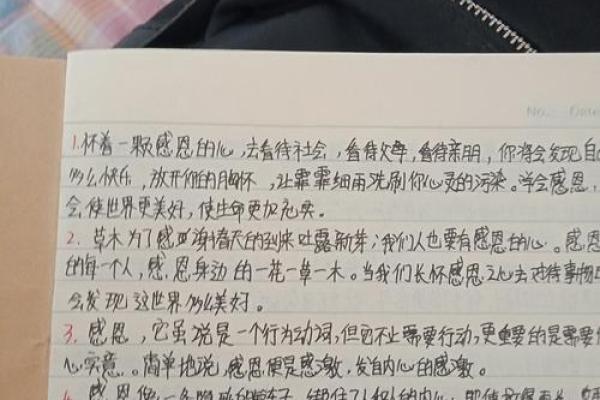 No.: Date
1.怀着一颗感恩的心,去看待社会,看待父母,看待亲朋,你将会发现自
多么快乐,放开你的胸怀,让霏霏细雨洗刷你心灵的污染。学会感恩,
会使世界更美好,使生命更加充实。
2. 草木为了感谢春天的到来吐露新芽;我们人也要有感恩的心。感恩
的每一个人,感恩身边的一花一草一木。当我们长怀感恩之心去对待事物
会发现这世界多么美好。
3. 感恩,它虽说是一个行为动词,但它不止需要行动,更重要的是需要
心实意。简单地说,感恩便是感激,发自内心的感激。
4. 感恩像一条